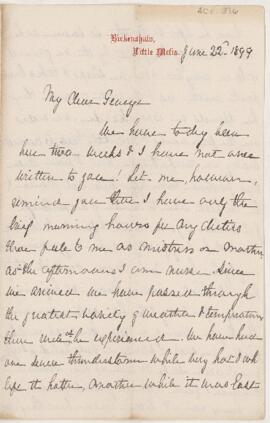 Birkenshaw,
Little Metis.
June 22nd 1899
My dear George
We have to-day been
here two weeks & I have not once
written to you! Let me, however,
remind you that I have only the
brief morning hours for any duties
that fall to me as mistress or mother
as the afternoons I am nurse. Since
we arrived we have passed through
the greatest variety of weather & temperature
there was to be experienced. We have had
one severe thunderstorm while very hot & wh
left the hotter, another while it was last